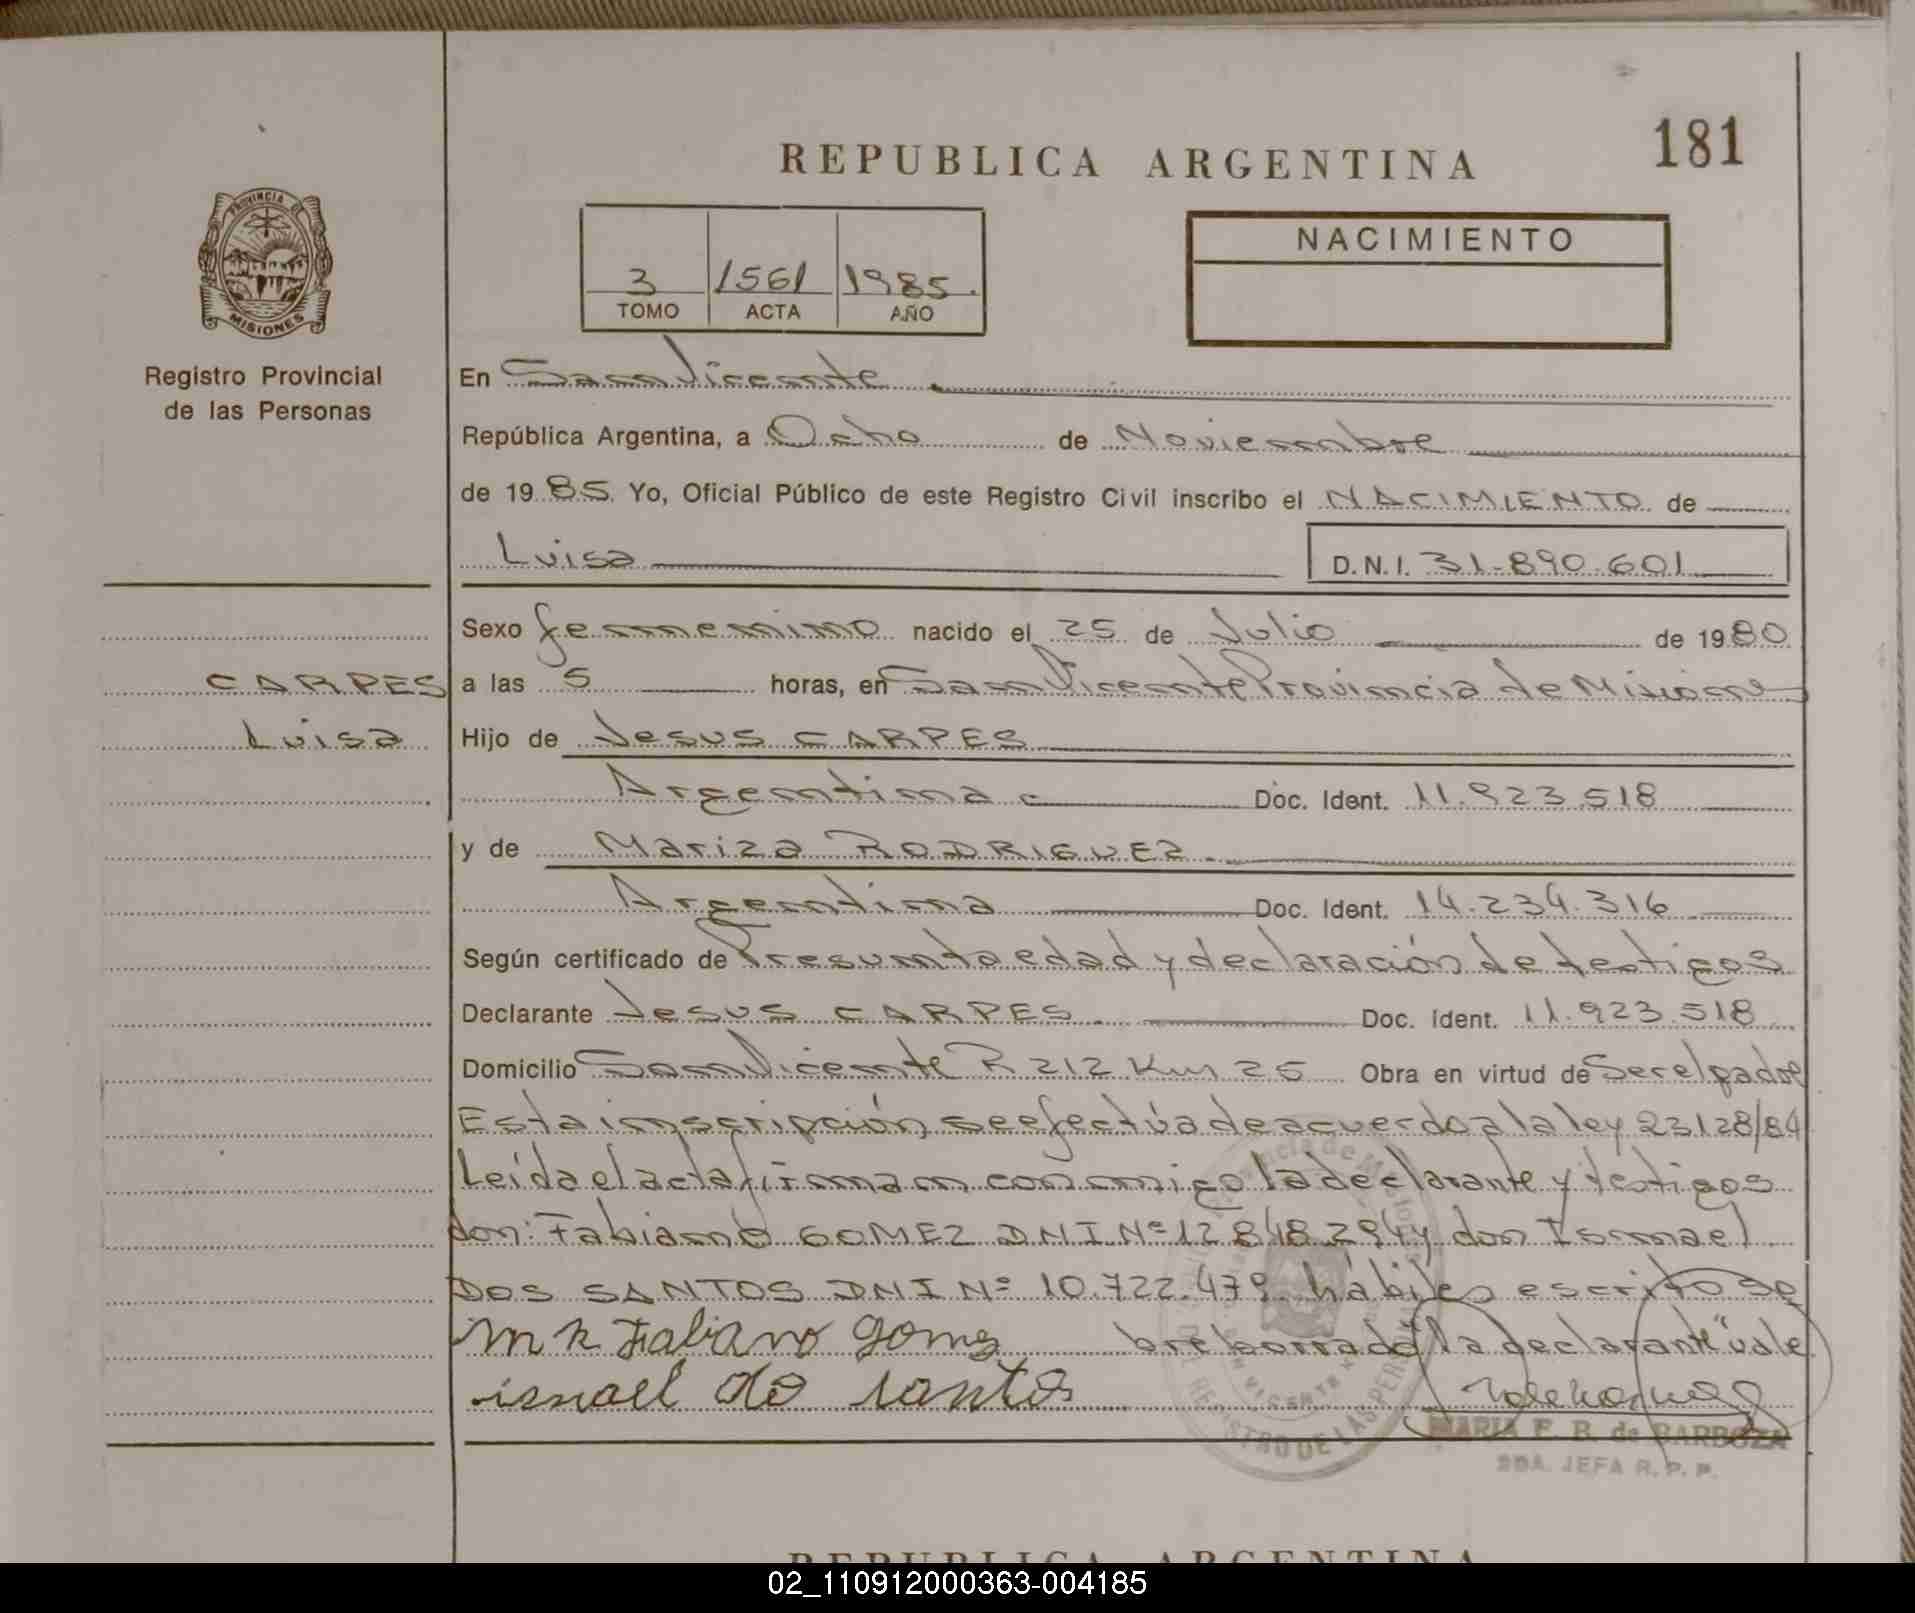 181
REPUBLICA ARGENTINA
PROVINCIA DE
MISIONES
Registro Provincial
de las Personas
3 1561 1985.
TOMO ACTA AÑO
NACIMIENTO
En San Vicente
República Argentina, a Ocho de Noviembre
de 19 85. Yo, Oficial Público de este Registro Civil inscribo el NACIMIENTO de
Luisa D.N.I. 31.890.601
Sexo femenino nacido el 25 de Julio de 19 80
CARPES a las 5 horas, en San Vicente Provincia de Misiones
Luisa Hijo de Jesus CARPES
Argentina Doc. Ident. 11.923.518
y de Mariza RODRIGUEZ.
Argentina Doc. Ident. 14.234.316
Según certificado de Presunta edad y declaración de testigos
Declarante Jesus CARPES Doc. Ident. 11.923.518
Domicilio San Vicente R 212 Km 25 Obra en virtud de Ser el padre
Esta inscripción se efectúa de acuerdo a la ley 23128/84
Leída el acta firman conmigo la declarante y testigos
don: Fabiano GOMEZ DNI Nº 12.848.294 y don Ismael
DOS SANTOS DNI Nº 10.722.479 hábiles escrito so
bre borrado "la declarante" vale
Fabiano gomez
ismael do santos
MARIA E. B. de BARBOZA
2DA. JEFA R. P. P.
REPUBLICA ARGENTINA
02_110912000363-004185